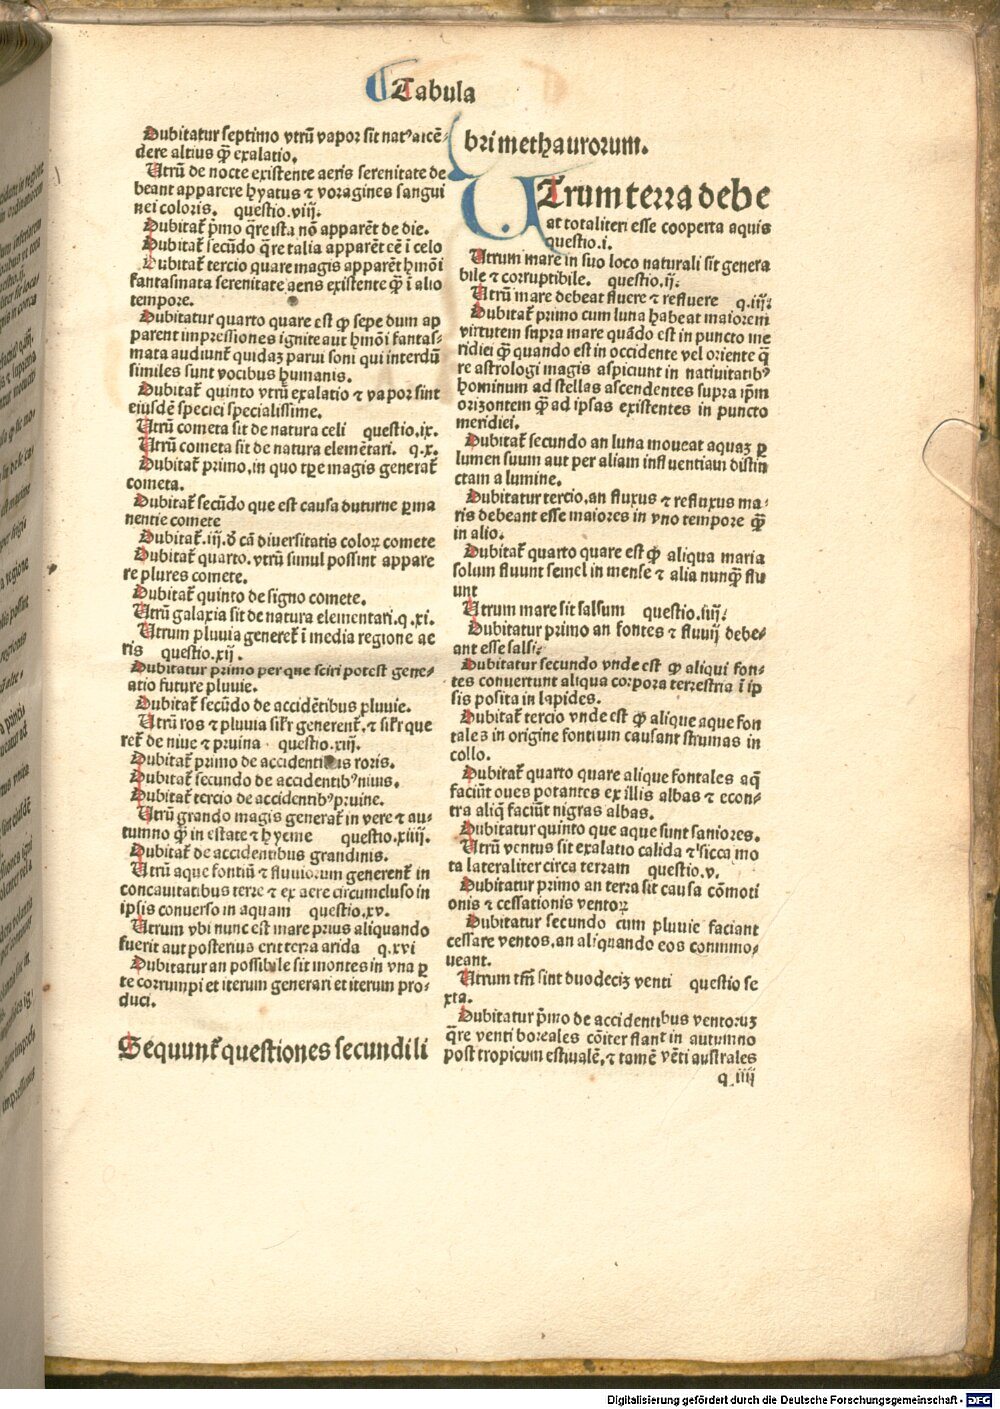 Tabula
Dubitatur septimo vtrū vapor sit natꝰ ascē-
dere altius ꝙ̄ exalatio.
Utrū de nocte existente aeris serenitate de
beant apparere hyatus ⁊ voragines sangui
nei coloris. questio.viij.
Dubitat᷑ p̄mo q̄re ista nō apparēt de die.
Dubitat᷑ secūdo q̄re talia apparēt cē ī celo
Dubitat᷑ tercio quare magis apparēt hmōi
fantasmata serenitate aeris existente ꝙ̄ ī alio
tempore.
Dubitatur quarto quare est ꝙ sepe dum ap
parent impressiones ignite aut hmōi fantas-
mata audiunt᷑ quidaꝫ parui soni qui interdū
similes sunt vocibus humanis.
Dubitat᷑ quinto vtrū exalatio ⁊ vapor sint
eiusdē speciei specialissime.
Utrū cometa sit de natura celi questio.ix.
Utrū cometa sit de natura elemētari. q.x.
Dubitat᷑ primo, in quo tp̄re magis generat᷑
cometa.
Dubitat᷑ secūdo que est causa duturne ꝑma
nentie comete
Dubitat᷑.iij.ð cā diuersitatis coloꝝ comete
Dubitat᷑ quarto. vtrū simul possint appare
re plures comete.
Dubitat᷑ quinto de signo comete.
Utrū galaxia sit de natura elementari.q.xi.
Utrum pluuia generet᷑ ī media regione ae
ris questio.xij.
Dubitatur primo per que sciri potest gene-
atio future pluuie.
Dubitat᷑ secūdo de accidētibus pluuie.
Utrū ros ⁊ pluuia sil᷑r generent᷑. ⁊ sil᷑r que
ret᷑ de niue ⁊ pruina. questio.xiij.
Dubitat᷑ primo de accidentibus roris.
Dubitat᷑ secundo de accidentibꝰ niuis.
Dubitat᷑ tercio de accidentibꝰ pruine.
Utrū grando magis generat᷑ in vere ⁊ au-
tumno ꝙ̄ in estate ⁊ hyeme questio.xiiij.
Dubitat᷑ de accidentibus grandinis.
Utrū aque fontiū ⁊ fluuiorum generent᷑ in
concauitatibus terre ⁊ ex aere circumcluso in
ipsis conuerso in aquam questio.xv.
Utrum vbi nunc est mare prius aliquando
fuerit aut posterius erit terra arida q.xvi
Dubitatur an possibile sit montes in vna ꝑ
te corrumpi et iterum generari et iterum pro-
duci.
Sequunt᷑ questiones secundi li
bri methaurorum.
UTrum terra debe
at totaliteri esse cooperta aquis
questio.i.
Utrum mare in suo loco naturali sit genera
bile ⁊ corruptibile. questio.ij.
Utrū mare debeat fluere ⁊ refluere q.iij.
Dubitat᷑ primo cum luna habeat maiorem
virtutem supra mare quādo est in puncto me
ridiei ꝙ̄ quando est in occidente vel oriente q̄
re astrologi magis aspiciunt in natiuitatibꝰ
hominum ad stellas ascendentes supra ip̄m
orizontem ꝙ̄ ad ipsas existentes in puncto
meridiei.
Dubitat᷑ secundo an luna moueat aquaꝫ ꝑ
lumen suum aut per aliam influentiam distin
ctam a lumine.
Dubitatur tercio, an fluxus ⁊ refluxus ma-
ris debeant esse maiores in vno tempore ꝙ̄
in alio.
Dubitat᷑ quarto quare est ꝙ aliqua maria
solum fluunt semel in mense ⁊ alia nunꝙ̄ flu
unt
Utrum mare sit salsum questio.iiij.
Dubitatur primo an fontes ⁊ fluuij debe-
ant esse salsi.
Dubitatur secundo vnde est ꝙ aliqui fon-
tes conuertunt aliqua corpora terrestria ī ip
sis posita in lapides.
Dubitat᷑ tercio vnde est ꝙ alique aque fon
tales in origine fontium causant strumas in
collo.
Dubitat᷑ quarto quare alique fontales aq̄
faciūt oues potantes ex illis albas ⁊ econ-
tra aliq̄ faciūt nigras albas.
Dubitatur quinto que aque sunt saniores.
Utrū ventus sit exalatio calida ⁊ sicca mo
ta lateraliter circa terram questio.v.
Dubitatur primo an terra sit causa cōmoti
onis ⁊ cessationis ventoꝝ
Dubitatur secundo cum pluuie faciant
cessare ventos, an aliquando eos commo-
ueant.
Utrum tm̄ sint duodeciꝫ venti questio se
xta.
Dubitatur p̄mo de accidentibus ventoruꝫ
q̄re venti boreales cōiter flant in autumno
post tropicum estiualē, ⁊ tamē vēti australes
q iiij
Digitalisierung gefördert durch die Deutsche Forschungsgemeinschaft - DFG